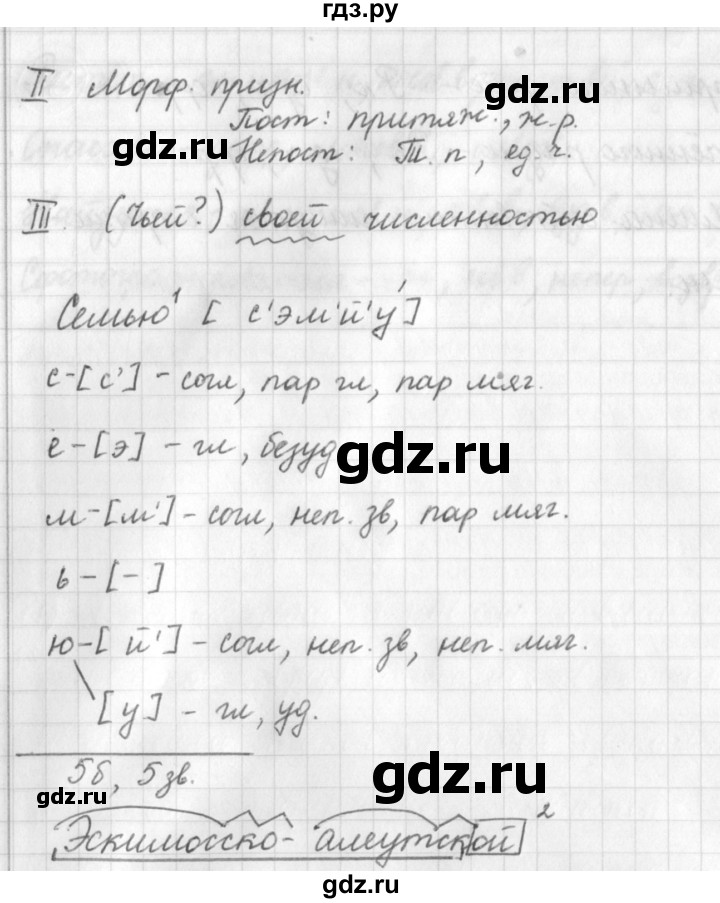 гдз.ру
II Морф. призн.
Пост: притяж., ж.р.
Непост: Т.п, ед.ч.
III. (Чьей?) своей численностью
Семью¹ [с'эм'й'у́]
с-[с'] - согл, пар гл, пар мяг.
е-[э] - гл, безуд
м-[м'] - согл, неп. зв, пар мяг.
ь-[-]
ю-[й'] - согл, неп. зв, неп. мяг.
[у] - гл, уд.
5б, 5зв.
Эскимосско-алеутской²
gdz.ru
gdz.ru
gdz.ru
gdz.ru
gdz.ru
gdz.ru
gdz.ru